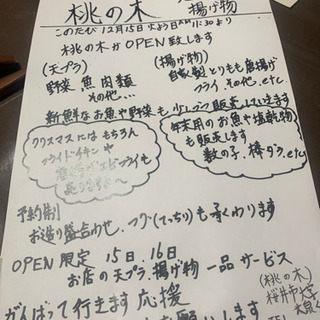 桃の木 揚げ物
このたび12月15日火よう日AM11:30より
桃の木がOPEN致します
(天プラ) (揚げ物)
野菜 魚 肉類 自家製とりもも唐揚げ
その他… フライ その他.etc
新鮮なお魚や野菜も少しづつ販売していきます
クリスマスには もちろん
フライドチキンや
エビフライも
売ります
年末用のお魚や塩乾物
も販売します
数の子.棒ダラ.etc
予約制
お造り盛合わせ、フグ(てっちり)も承くわります
OPEN限定 15日.16日
お店の天プラ.揚げ物 一品サービス
(桃の木)
桜井市大字
がんばって行きます応援
します